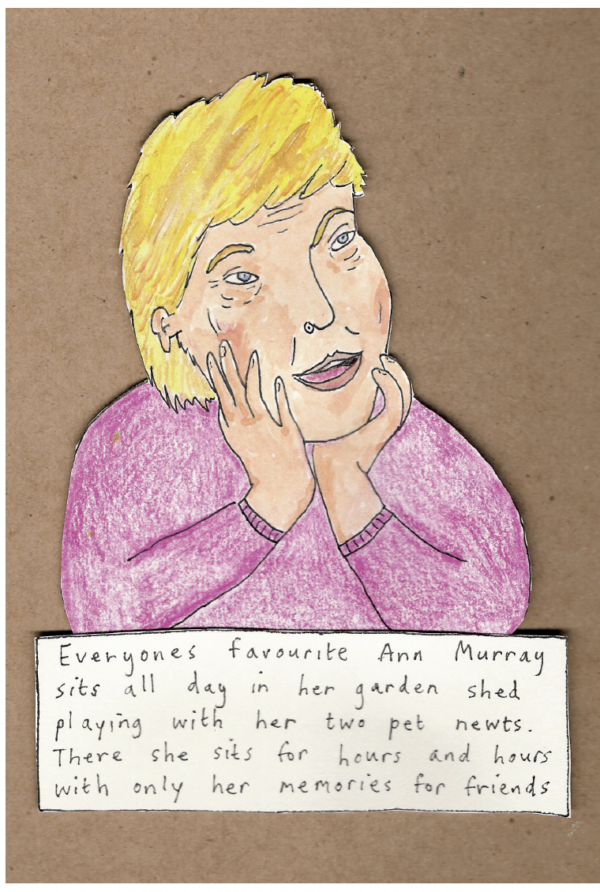 Everyones favourite Ann Murray
sits all day in her garden shed
playing with her two pet newts.
There she sits for hours and hours
with only her memories for friends